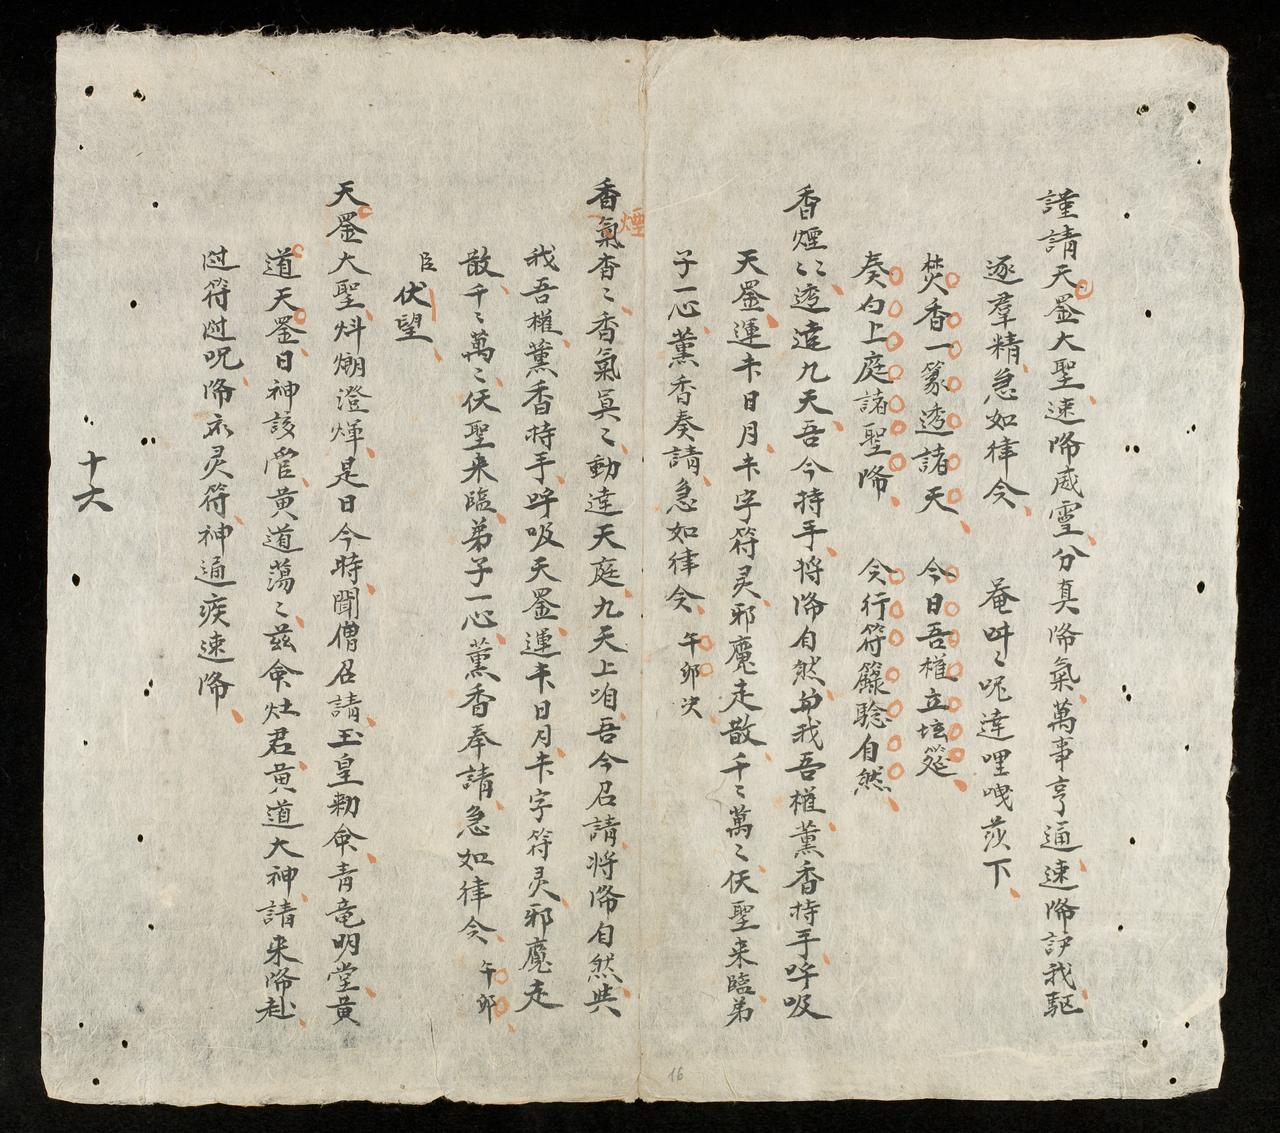 謹請天罡大聖速降威灵分真降氣萬事亨通速降護我驅
逐羣精急如律令 菴吽々呢達哩㖿莎下
焚香一篆透諸天 今日吾權立坛筵
奏白上庭諸聖降 今行符籙聡自然
香煙々透達九天吾今持手將降自然由我吾權薰香持手呼吸
天罡運步日月步字符灵邪魔走散千々萬々伏聖来臨弟
子一心薰香奏請急如律令 午邜决
煙
香氣杳々香氣冥々動達天庭九天上咱吾今召請將降自然與
我吾權薰香持手呼吸天罡運步日月步字符灵邪魔走
散千々萬々伏聖来臨弟子一心薰香奉請急如律令 午邜
臣 伏望
天罡大聖炓煳澄煇是日今時聞僧召請玉皇勑命青竜明堂黄
道天罡日神該管黄道蕩々兹命灶君黄道大神請来降赴
过符过呪降示灵符神通疾速降
十六
16